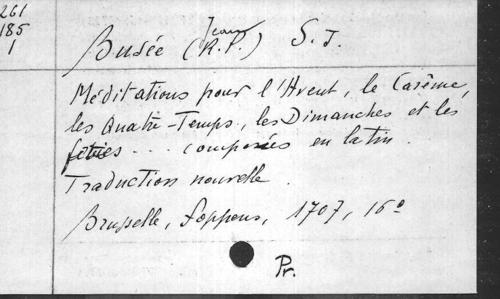 261
185
1
Jean
Busée (R.P.) S.J.
Méditations pour l'Avent, le Carême,
les Quatre-Temps, les Dimanches et les
fêtes ... composées en latin.
Traduction nouvelle.
Bruxelle, Foppens, 1707, 16º
Pr.